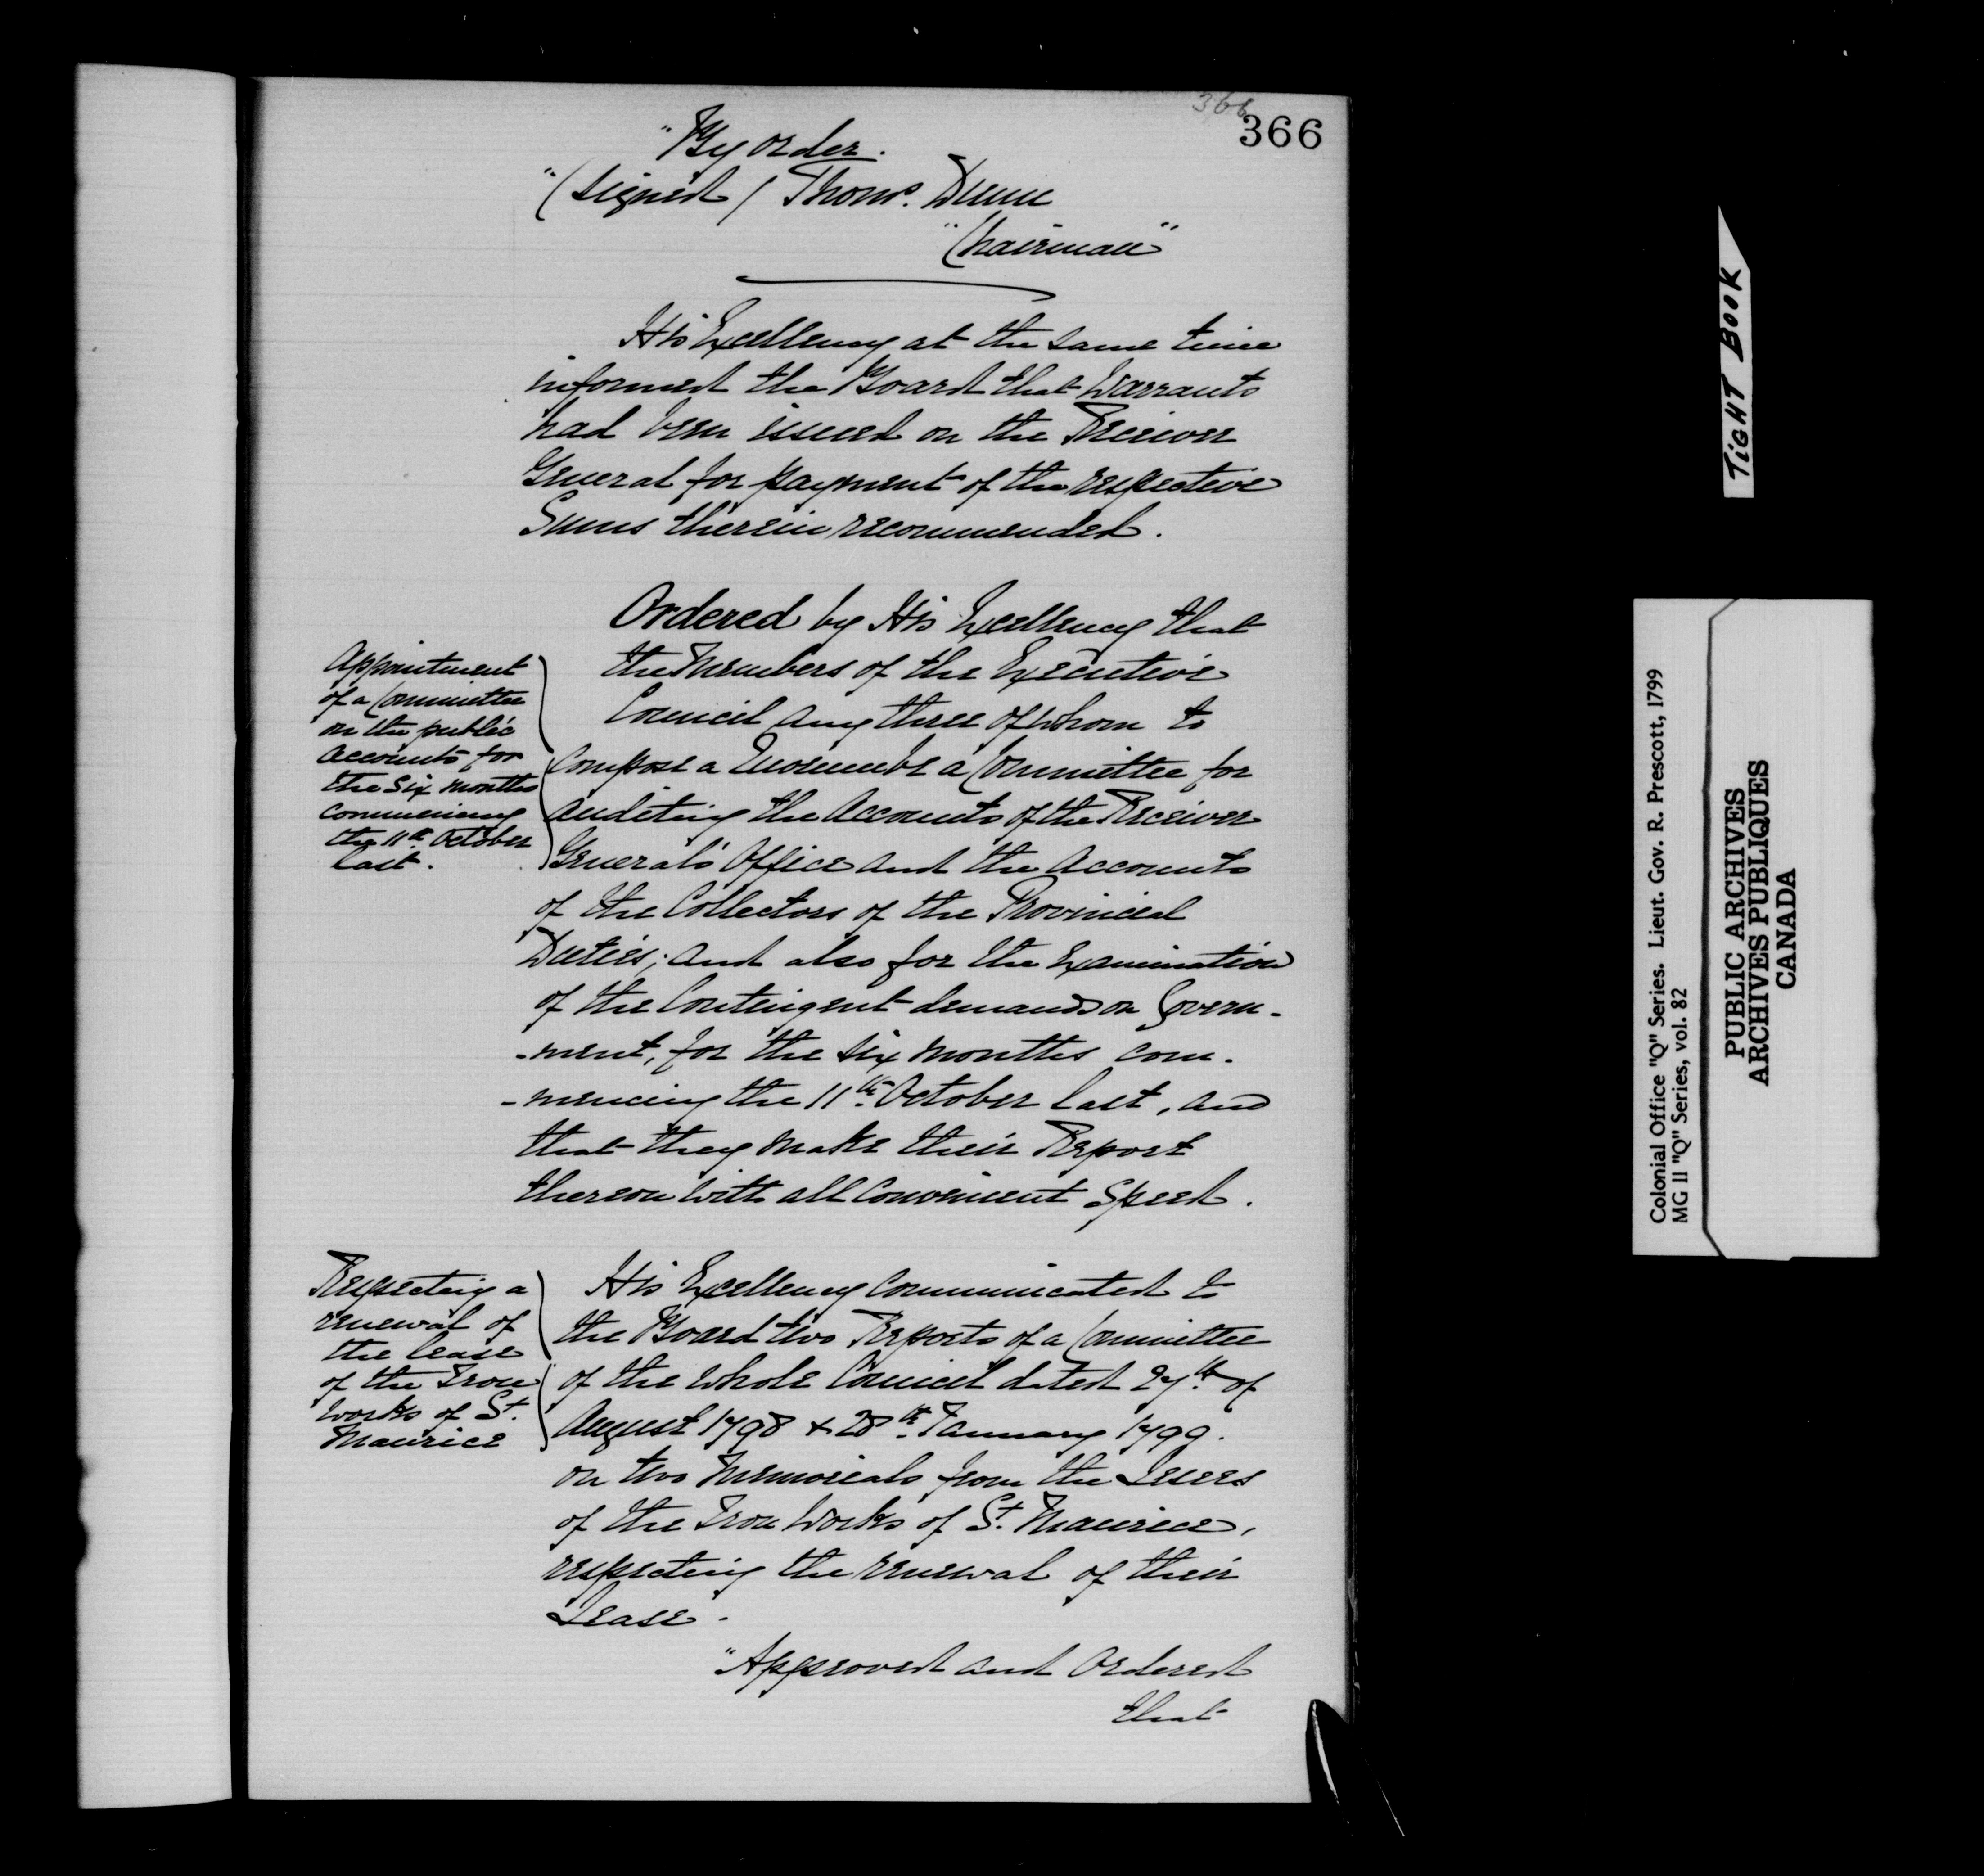 366
366
"By order.
"(signed) Thoms. Dunn
"Chairman"
His Excellency at the same time
informed the Board that Warrants
had been issued on the Receiver
General for payment of the respective
Sums therein recommended.
Appointment
of a Committee
on the public
accounts for
the six months
commencing
the 11th October
last.
Ordered by His Excellency that
the Members of the Executive
Council any three of whom to
Compose a Quorum be a Committee for
auditing the Accounts of the Receiver
General's Office and the Accounts
of the Collectors of the Provincial
Duties; and also for the Examination
of the Contingent demands on Govern-
-ment, for the six months com-
-mencing the 11th October last, and
that they make their Report
thereon with all Convenient Speed.
Respecting a
renewal of
the lease
of the Iron
works of St.
Maurice
His Excellency Communicated to
the Board two Reports of a Committee
of the whole Council dated 27th of
August 1798 & 28th January 1799.
on two Memorials from the Lesees
of the Iron Works of St. Maurice,
respecting the renewal of their
Lease.
"Approved and Ordered
that
TIGHT BOOK
Colonial Office "Q" Series. Lieut. Gov. R. Prescott, 1799
MG II "Q" Series, vol. 82
PUBLIC ARCHIVES
ARCHIVES PUBLIQUES
CANADA